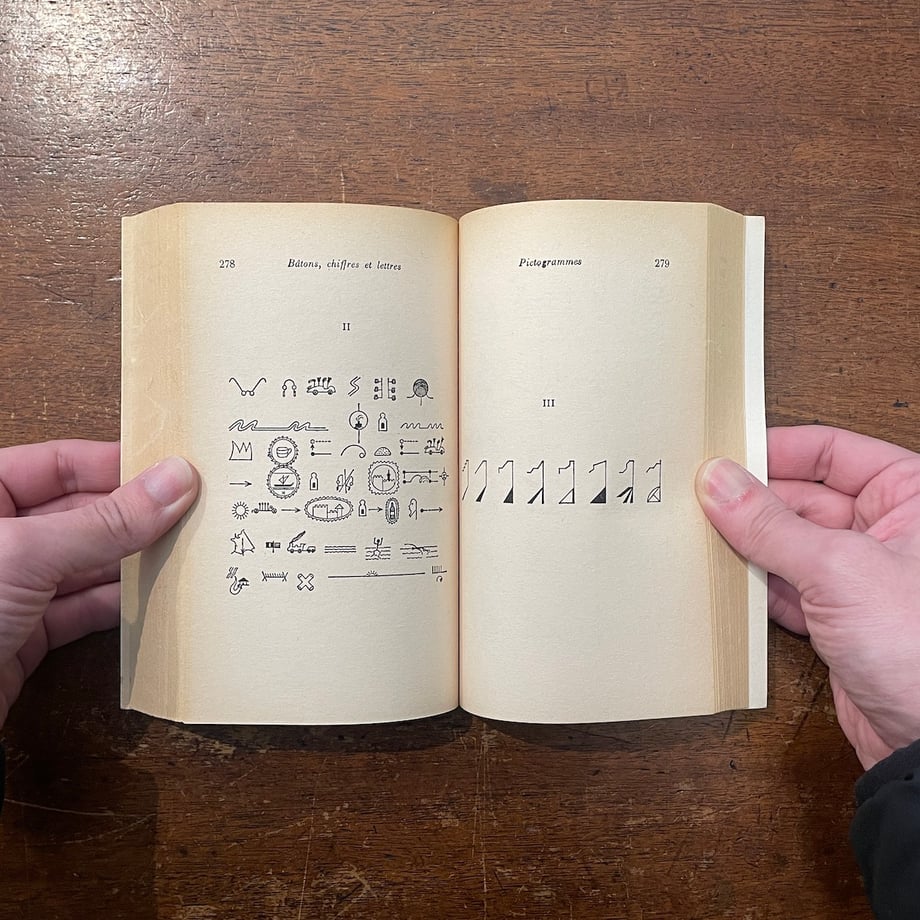 278 Bâtons, chiffres et lettres
II
Pictogrammes 279
III